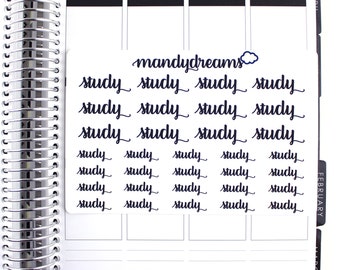 mandydreams
study study study study
study study study study
study study study study
study study study study study
study study study study study
study study study study study
study study study study study
FEBRUARY